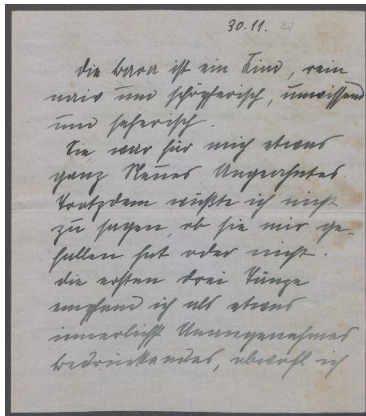 30.11.
die Bara ist ein Kind, rein
naiv und schöpferisch, unwissend
und seherisch.
Sie war für mich etwas
ganz Neues Ungeahntes
Trotzdem wüßte ich nicht
zu sagen, ob sie mir ge-
fallen hat oder nicht.
die ersten drei Tänze
empfand ich als etwas
innerlichst Unangenehmes
Bedrückendes, obwohl ich